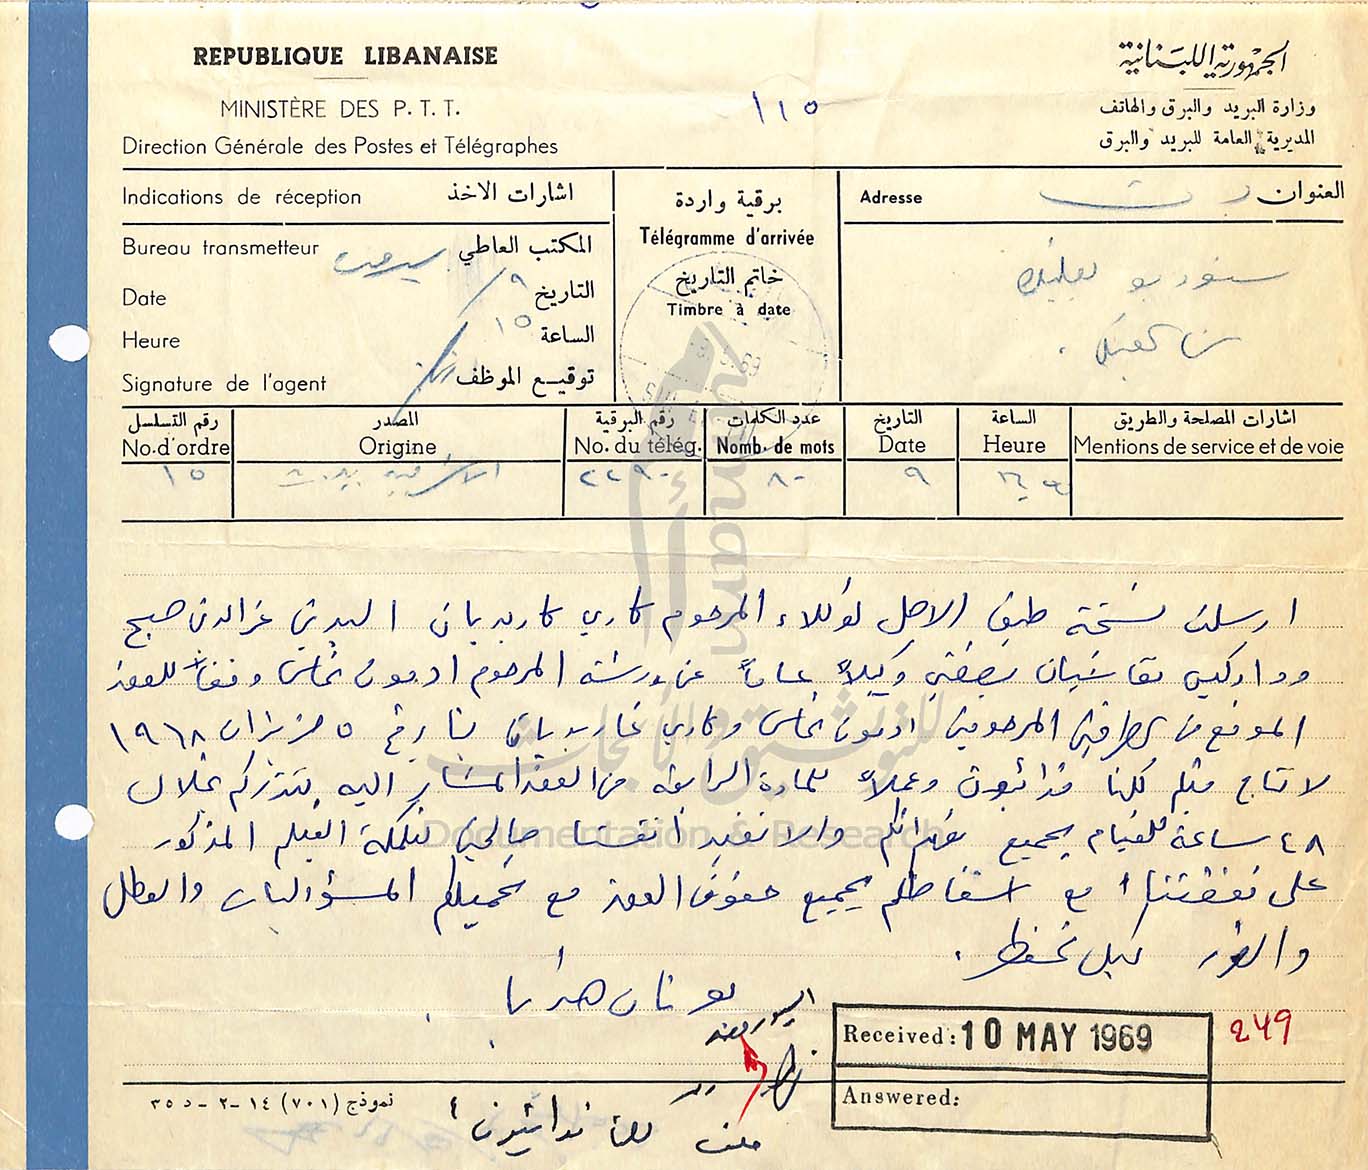 REPUBLIQUE LIBANAISE
الجمهورية اللبنانية
MINISTÈRE DES P. T. T.
١١٥
وزارة البريد والبرق والهاتف
Direction Générale des Postes et Télégraphes
المديرية العامة للبريد والبرق
Indications de réception اشارات الاخذ
برقية واردة
Adresse العنوان
Bureau transmetteur المكتب العاطي
Télégramme d'arrivée
Date التاريخ ٩
خاتم التاريخ
ستوديو بعلبك
Timbre à date
Heure الساعة ١٥
سن الفيل .
Signature de l'agent توقيع الموظف
رقم التسلسل المصدر رقم البرقية عدد الكلمات التاريخ الساعة اشارات المصلحة والطريق
No.d'ordre Origine No. du télég. Nomb. de mots Date Heure Mentions de service et de voie
١٥ الاشرفية بيروت ٢٢٩٠ ٨٠ ٩
ارسلت نسخة طبق الاصل لوكلاء المرحوم كاري كاربديان السيدين عزالدين صبح
وداركيس بصفتي وكيلاً عاماً عن ورثة المرحوم ادمون نحاس وفقاً للعقد
الموقع من طرفي المرحومين ادمون نحاس وكاري غاربديان بتاريخ ٥ حزيران ١٩٦٨
لانتاج فيلم كلنا فدائيون وعملاً بالمادة الرابعة من العقد المشار اليه ننذركم خلال
٤٨ ساعة للقيام بجميع والا نعتبر أنفسنا الفيلم المذكور
على نفقتنا مع اسقاطكم بجميع حقوق العقد مع تحميلكم المسؤوليات والعطل
والضرر بكل تحفظ .
يونان هدايا
Received: 10 MAY 1969
249
Answered:
نموذج (٧٠١) ١٤-٢-٣٥
ملف كلنا فدائيون
أمم
umam
للتوثيق والأبحاث
Documentation & Research